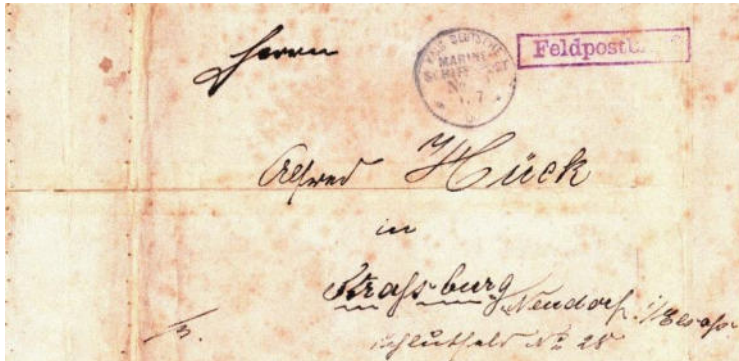 Herrn
KAIS. DEUTSCHE
MARINE
SCHIFFSPOST
No
Feldpost
Alfred Hück
in
Strassburg Neudorf i/Elsass
No 28